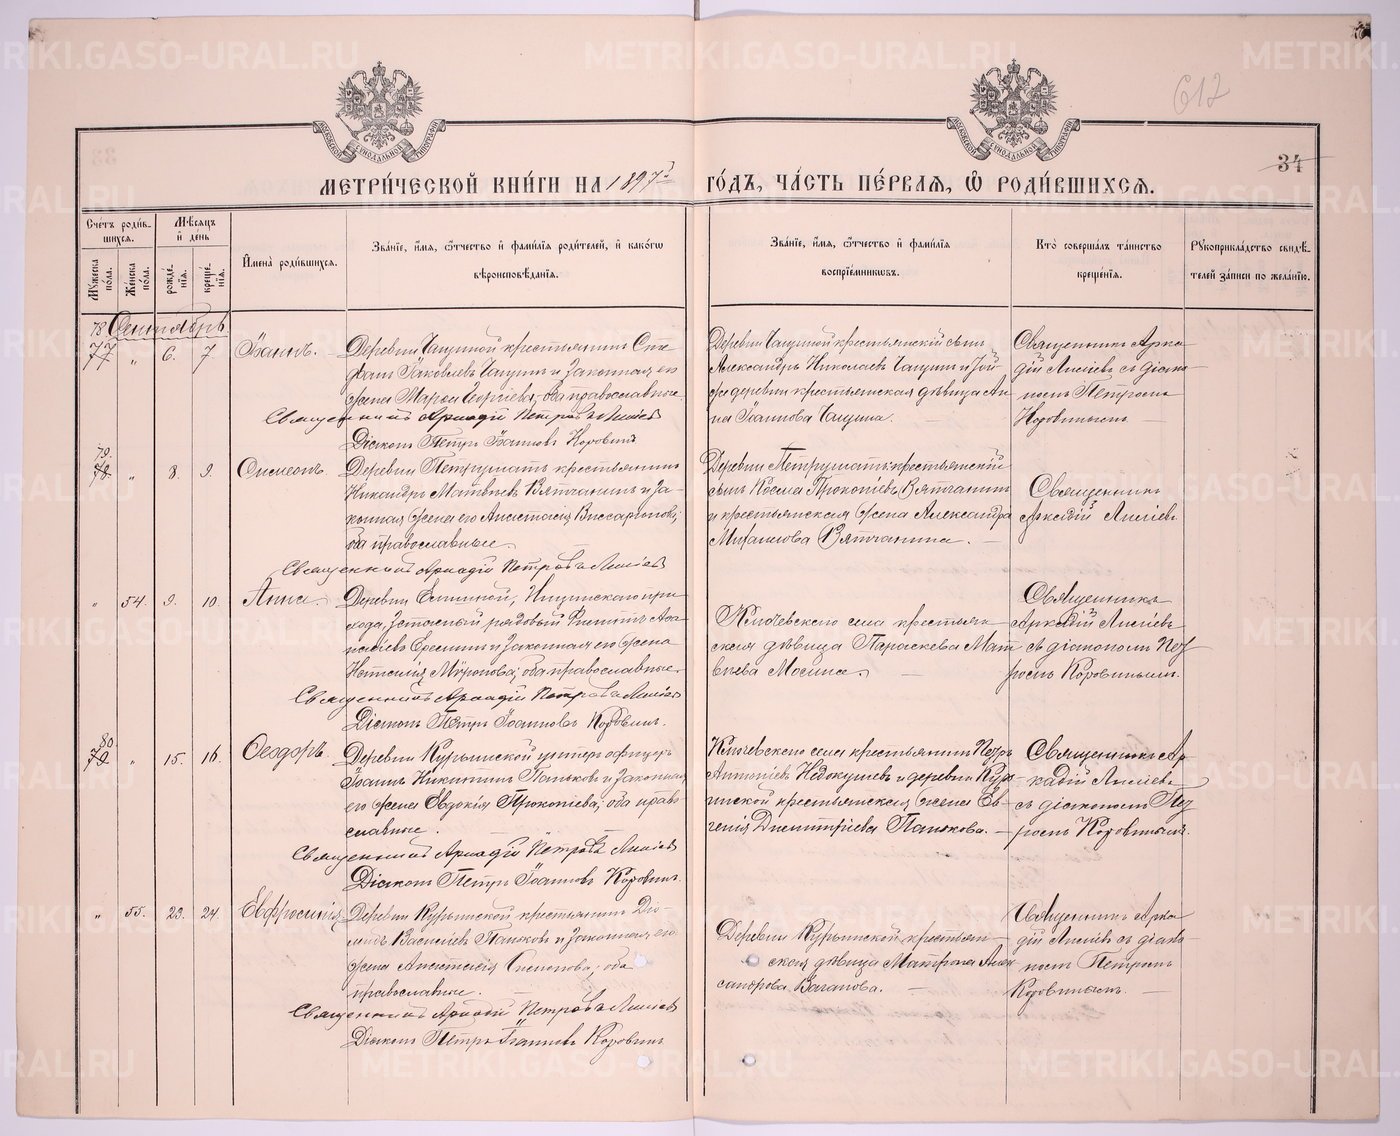 612
34
МЕТРИ́ЧЕСКОЙ КНИ́ГИ НА 1897й ГО́ДЪ, ЧА́СТЬ ПЕ́РВАЯ, Ѡ РОДИ́ВШИХСЯ.
Сче́тъ роди́вшихся.
Мꙋ́жеска по́ла.
Же́нска по́ла.
Мѣ́сяцъ и де́нь
рожде́нія.
креще́нія.
И́мена̀ роди́вшихся.
Зва́ніе, и́мя, ѻ́тчество и фами́лія роди́телей, и како́гѡ
вѣроисповѣ́данія.
Зва́ніе, и́мя, ѻ́тчество и фами́лія
воспріе́мникѡвъ.
Кто̀ соверша́лъ та́инство
креще́нія.
Рꙋкоприкла́дство свидѣ́-
телей за́писи по жела́нію.
Сентябрь.
78
77 " 6. 7 Іоаннъ.
Деревни Чащиной крестьянинъ Сте-
фанъ Іаковлевъ Чащинъ и законная его
жена Марѳа Георгіева, оба православные
Священникъ Аркадій Петровъ Лисіевъ
Діаконъ Петръ Іоанновъ Коровинъ
Деревни Чащиной крестьянскій сынъ
Александръ Николаевъ Чащинъ и той
же деревни крестьянская дѣвица Ан-
на Іоаннова Чащина.
Священникъ Арка-
дій Лисіевъ съ діако-
номъ Петромъ
Коровинымъ
79.
78. " 8 9. Симеонъ.
Деревни Петрушатъ крестьянинъ
Никандръ Матвѣевъ Вятчанинъ и за-
конная жена его Анастасія Виссаріонова,
оба православные
Священникъ Аркадій Петровъ Лисіевъ
Деревни Петрушатъ крестьянскій
сынъ Косма Прокопіевъ Вятчанинъ
и крестьянская жена Александра
Михаилова Вятчанина.
Священникъ
Аркадій Лисіевъ
" 54. 9. 10. Анна.
Деревни Елиной, Ницинскаго при-
хода, запасный рядовый Филиппъ Аѳа-
насіевъ и законная его жена
Наталія Миронова; оба православные.
Священникъ Аркадій Петровъ Лисіевъ
Діаконъ Петръ Іоанновъ Коровинъ.
Ключевскаго села крестьян-
ская дѣвица Параскева Мат-
вѣева Мосина.
Священникъ
Аркадій Лисіевъ
съ діакономъ Пет-
ромъ Коровинымъ.
80.
79. " 15. 16. Ѳеодоръ.
Деревни Курьинской унтеръ офицеръ
Іоаннъ Никитинъ Паньковъ и законная
его жена Евдокія Прокопіева; оба право-
славные.
Священникъ Аркадій Петровъ Лисіевъ
Діаконъ Петръ Іоанновъ Коровинъ.
Ключевскаго села крестьянинъ Петръ
Антоніевъ Недокушевъ и деревни Курь-
инской крестьянская жена Ев-
генія Димитріева Панькова.
Священникъ Ар-
кадій Лисіевъ
съ діакономъ Пет-
ромъ Коровинымъ.
" 55. 23. 24. Евфросинія.
Деревни Курьинской крестьянинъ Діо-
мидъ Василіевъ Паньковъ и законная его
жена Анастасія Симеонова; оба
православные.
Священникъ Аркадій Петровъ Лисіевъ
Діаконъ Петръ Іоанновъ Коровинъ
Деревни Курьинской крестьян-
ская дѣвица Матрона Алек-
сандрова Ваганова.
Священникъ Арка-
дій Лисіевъ съ діако-
номъ Петромъ
Коровинымъ.
METRIKI.GASO-URAL.RU